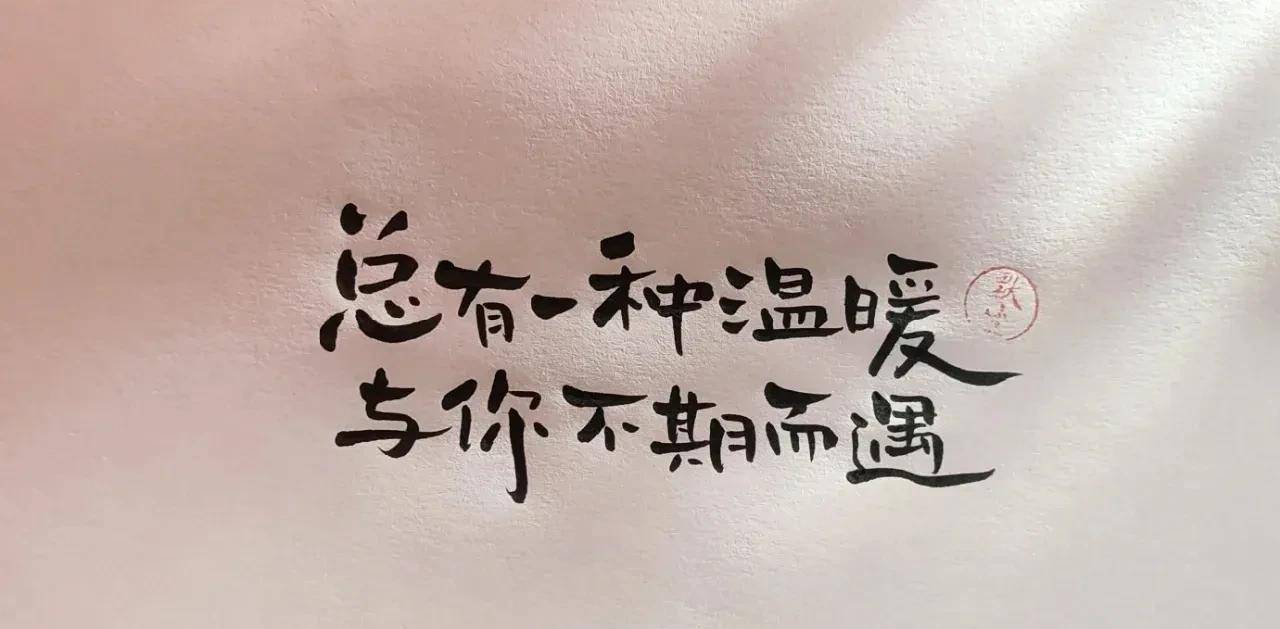 总有一种温暖
与你不期而遇